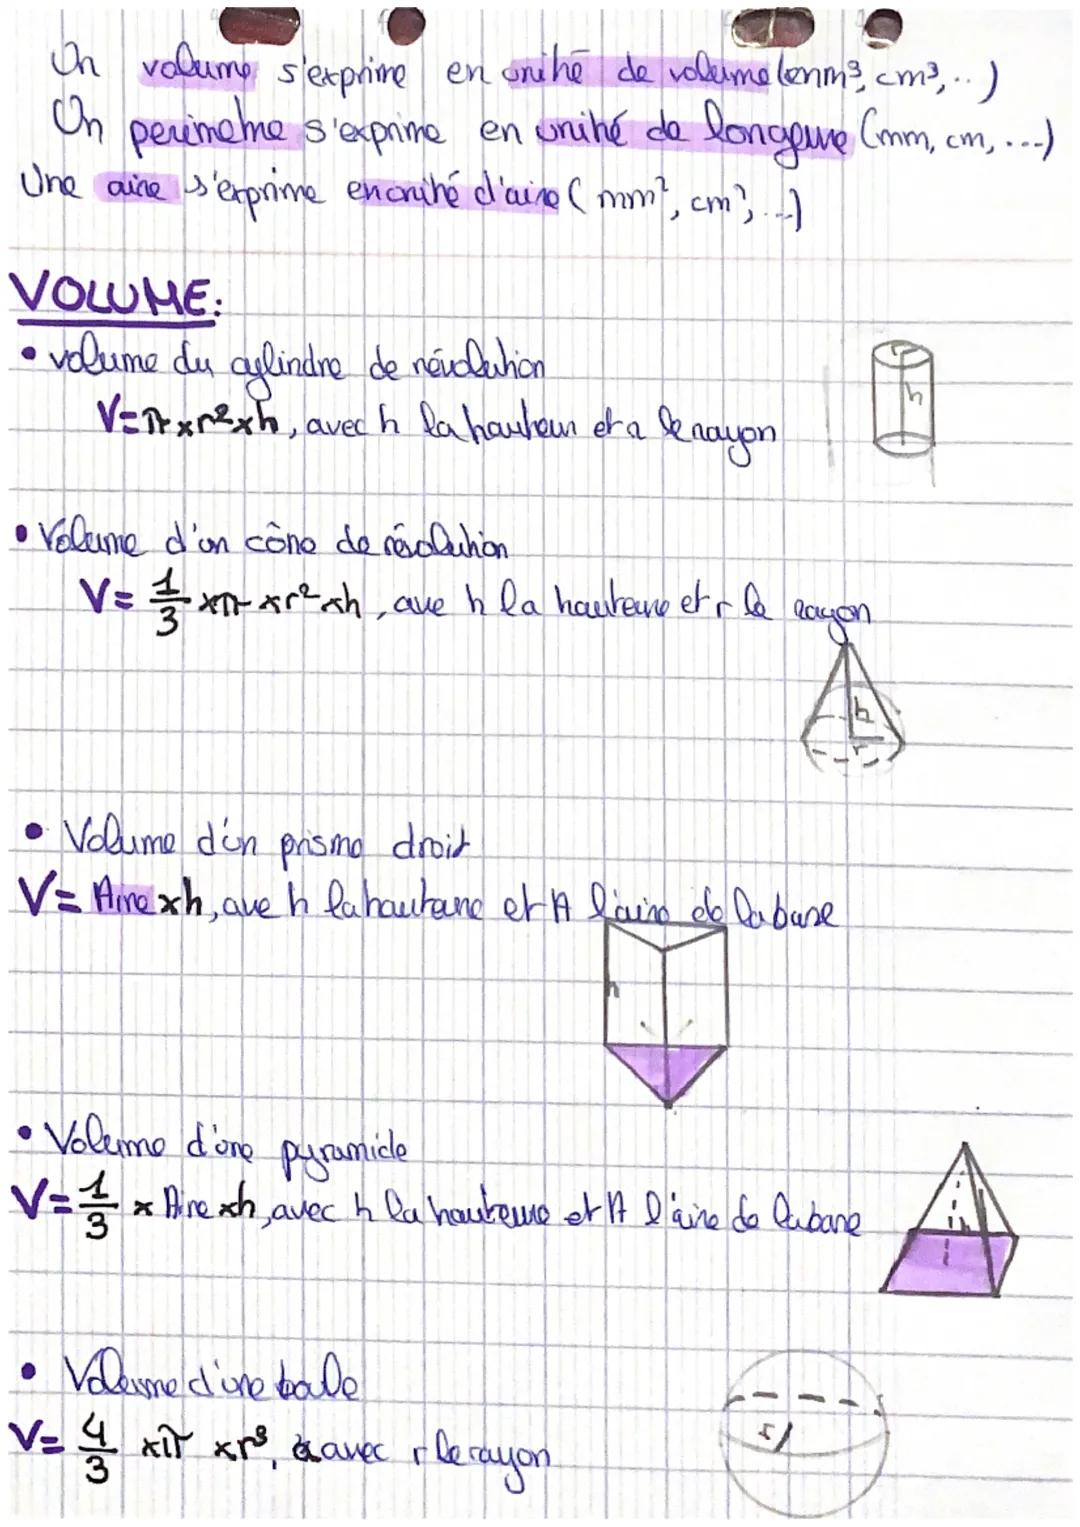 Un volume s'exprime en unité de volume (enm³, cm³, ..)
Un périmètre s'exprime en unité de longueur (mm, cm, ...)
Une aire s'exprime en unité d'aire ( mm², cm², ...)
VOLUME:
• volume du cylindre de révolution
V=π×r²×h, avec h la hauteur et r le rayon
r
h
• Volume d'un cône de révolution
V= 1/3 ×π ×r²×h, ave h la hauteur et r le rayon
h
r
• Volume d'un prisme droit
V= Aire×h, ave h la hauteur et A l'aire de la base
h
• Volume d'une pyramide
V= 1/3 × Aire ×h, avec h la hauteur et A l'aire de la base
h
• Volume d'une boule
V= 4/3 ×π ×r³, avec r le rayon
r